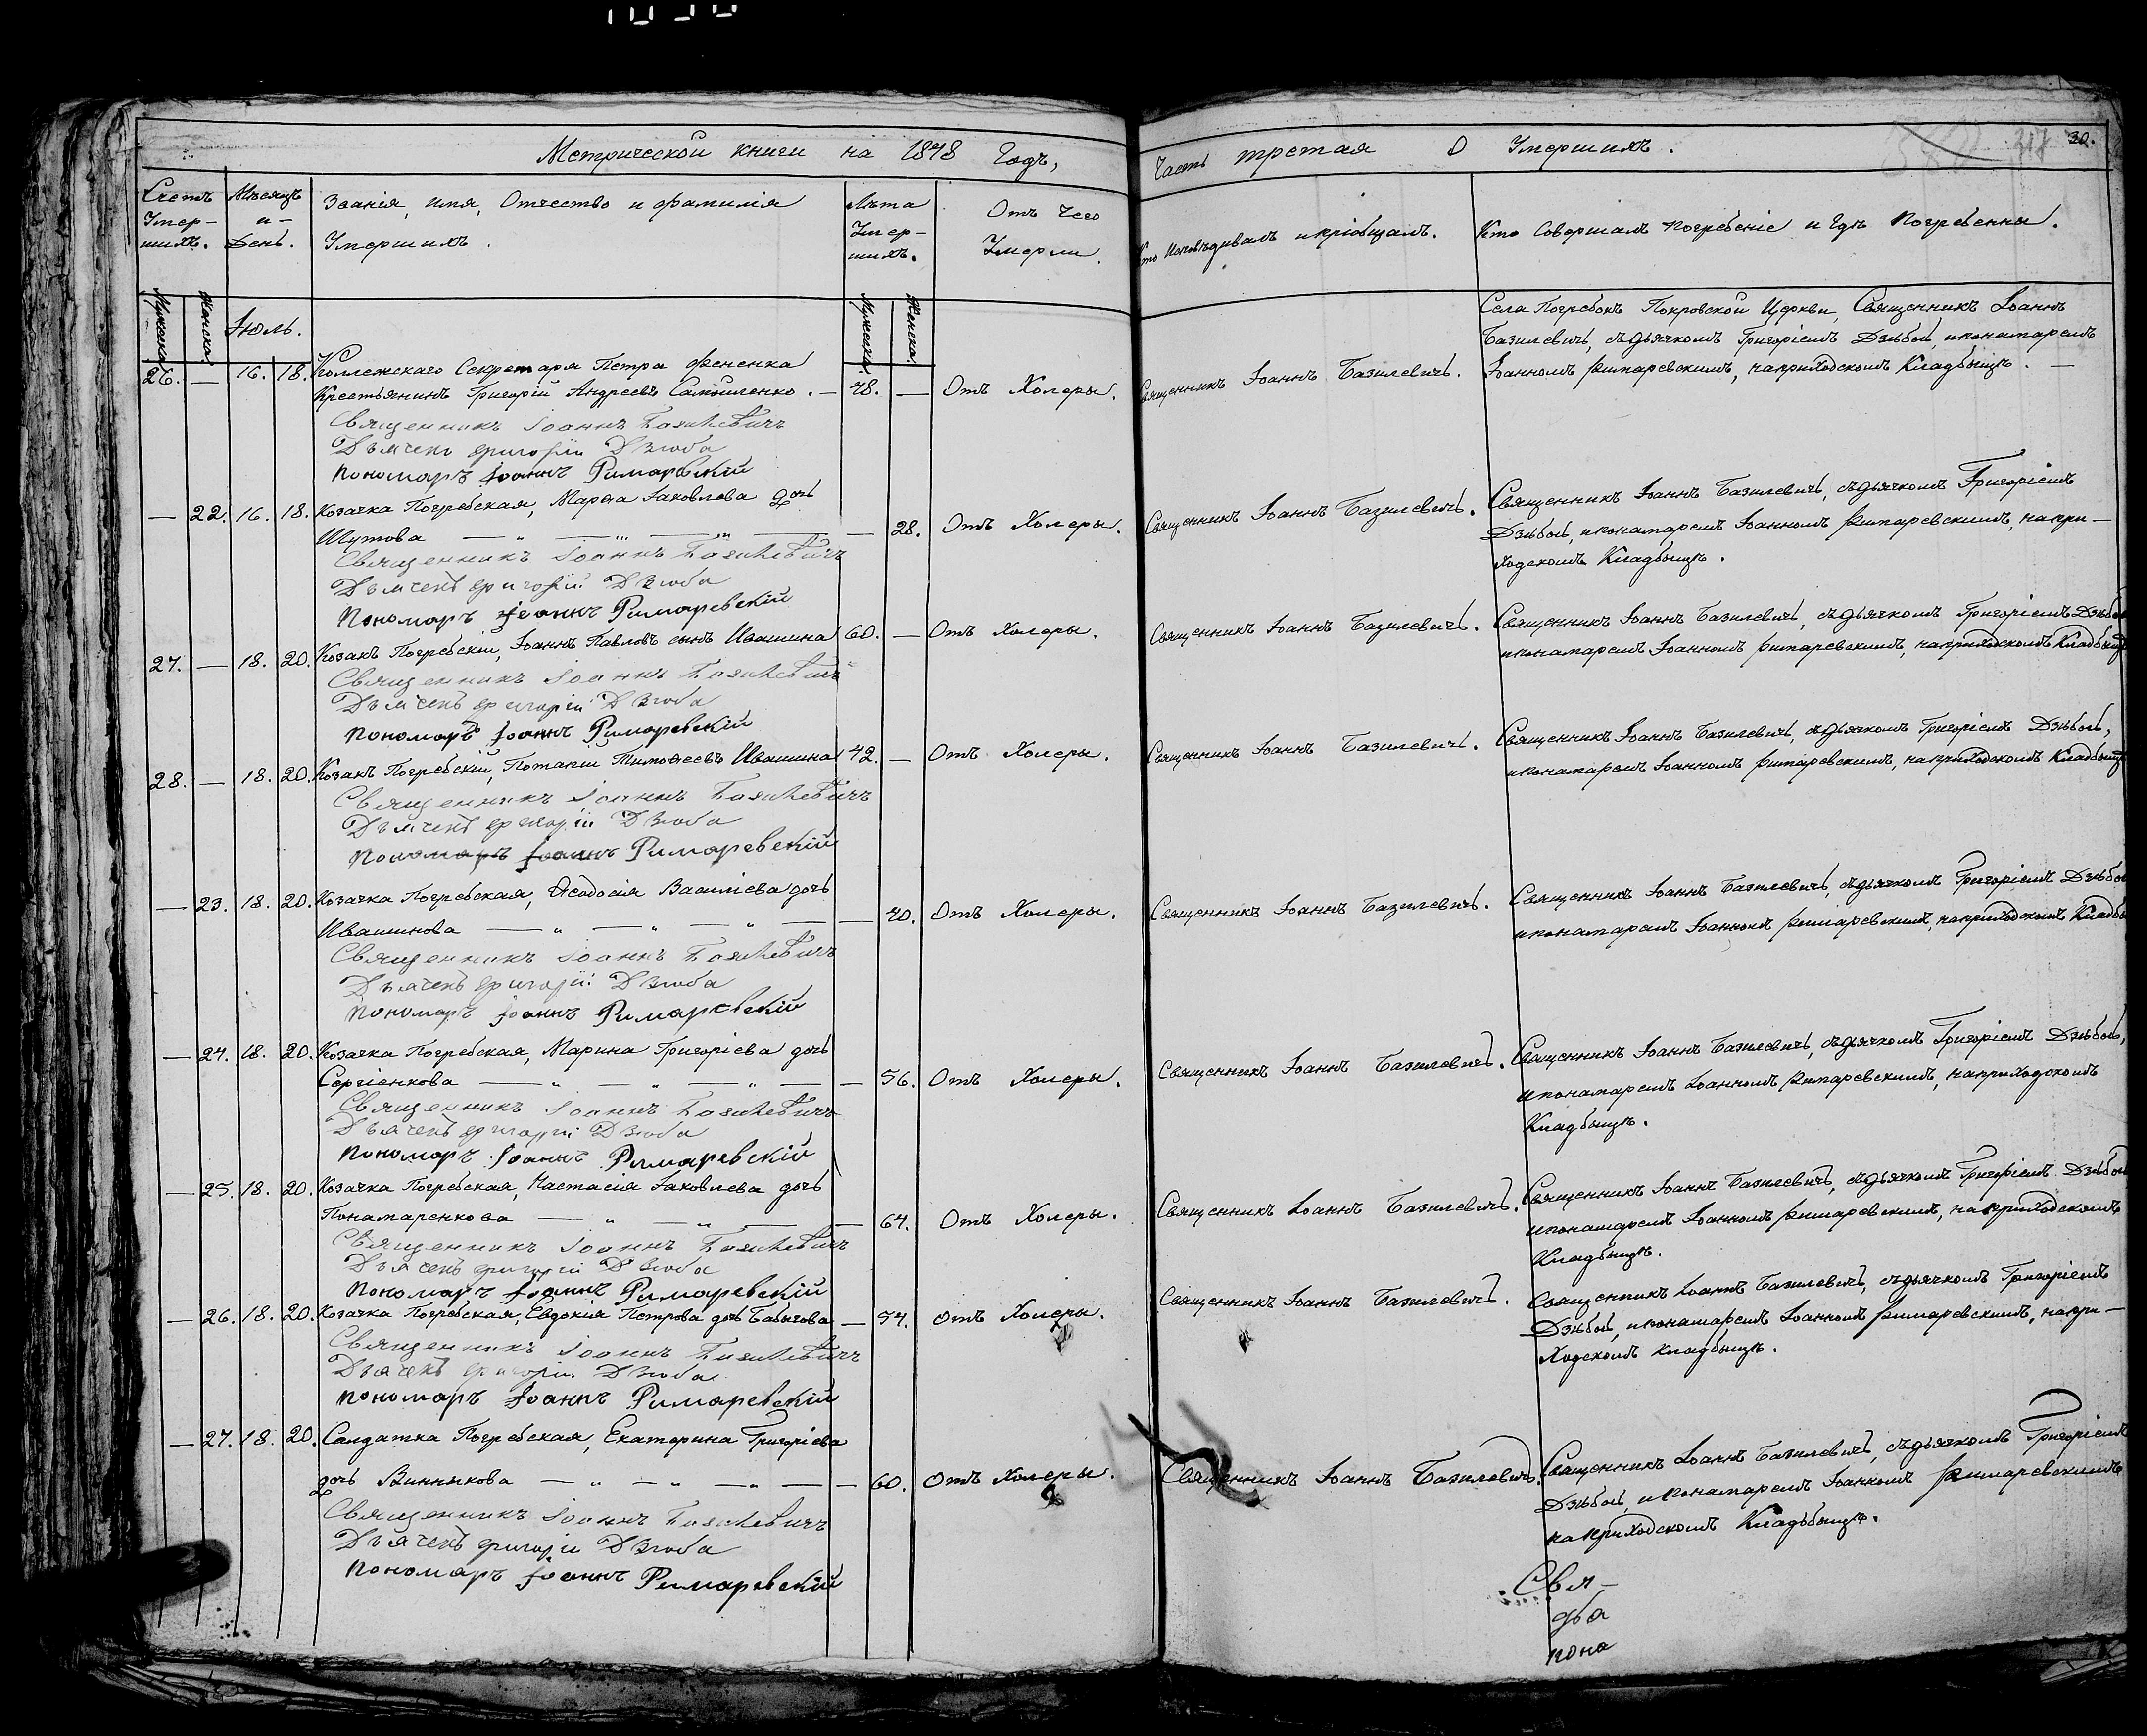 Метрической книги на 1848 Годъ,
Часть третая О Умершихъ. 30.
Счетъ Умер- шихъ.
Мѣсяцъ и День.
Званія, имя, Отчество и фамилія Умершихъ.
Лѣта Умер- шихъ.
Отъ Чего Умерли.
Кто Исповѣдывалъ и пріобщалъ.
Кто Совершалъ Погребеніе и Гдѣ Погребенны.
Мужеска Женска Іюль. Мужеска Женска
Села Погребокъ Покровской Церкви, Священникъ Іоаннъ
Базилевичъ, съ дьячкомъ Григоріемъ Дзюбой, и понамаремъ
Іоанномъ Римаревскимъ, на приходскомъ Кладбищѣ. —
26. — 16. 18. Коллежскаго Секретаря Петра Фененка
Крестьянинъ Григорій Андреевъ Самойленко. — 48. — Отъ Холеры. Священникъ Іоаннъ Базилевичъ.
Священникъ Іоаннъ Базилевичъ
Дьячекъ Григорій Дзюба
Пономаръ Іоаннъ Римаревскій
— 22. 16. 18. Козачка Погребская, Марѳа Іаковлева дочь
Шутова — 28. Отъ Холеры. Священникъ Іоаннъ Базилевичъ.
Священникъ Іоаннъ Базилевичъ, съ дьячкомъ Григоріемъ
Дзюбой, и понамаремъ Іоанномъ Римаревскимъ, на при-
ходскомъ Кладбищѣ.
Священникъ Іоаннъ Базилевичъ
Дьячекъ Григорій Дзюба
Пономаръ Іоаннъ Римаревскій
27. — 18. 20. Козакъ Погребскій, Іоаннъ Павловъ сынъ Ивашина 60. — Отъ Холеры. Священникъ Іоаннъ Базилевичъ.
Священникъ Іоаннъ Базилевичъ, съ дьячкомъ Григоріемъ Дзюбой
и понамаремъ Іоанномъ Римаревскимъ, на приходскомъ Кладбищѣ
Священникъ Іоаннъ Базилевичъ
Дьячекъ Григорій Дзюба
Пономаръ Іоаннъ Римаревскій
28. — 18. 20. Козакъ Погребскій, Потапій Тимоѳеевъ Ивашина 42. — Отъ Холеры. Священникъ Іоаннъ Базилевичъ.
Священникъ Іоаннъ Базилевичъ, съ дьячкомъ Григоріемъ Дзюбой,
и понамаремъ Іоанномъ Римаревскимъ, на приходскомъ Кладбищѣ
Священникъ Іоаннъ Базилевичъ
Дьячекъ Григорій Дзюба
Пономаръ Іоаннъ Римаревскій
— 23. 18. 20. Козачка Погребская, Ѳеодосія Василіева дочь
Ивашинова — 40. Отъ Холеры. Священникъ Іоаннъ Базилевичъ.
Священникъ Іоаннъ Базилевичъ, съ дьячкомъ Григоріемъ Дзюбой
и понамаремъ Іоанномъ Римаревскимъ, на приходскомъ Кладби
Священникъ Іоаннъ Базилевичъ
Дьячекъ Григорій Дзюба
Пономаръ Іоаннъ Римаревскій
— 24. 18. 20. Козачка Погребская, Марина Григоріева дочь
Сергіенкова — 56. Отъ Холеры. Священникъ Іоаннъ Базилевичъ.
Священникъ Іоаннъ Базилевичъ, съ дьячкомъ Григоріемъ Дзюбой,
и понамаремъ Іоанномъ Римаревскимъ, на приходскомъ
Кладбищѣ.
Священникъ Іоаннъ Базилевичъ
Дьячекъ Григорій Дзюба
Пономаръ Іоаннъ Римаревскій
— 25. 18. 20. Козачка Погребская, Настасія Іаковлева дочь
Понамаренкова — 64. Отъ Холеры. Священникъ Іоаннъ Базилевичъ.
Священникъ Іоаннъ Базилевичъ, съ дьячкомъ Григоріемъ Дзюбой
и понамаремъ Іоанномъ Римаревскимъ, на приходскомъ
Кладбищѣ.
Священникъ Іоаннъ Базилевичъ
Дьячекъ Григорій Дзюба
Пономаръ Іоаннъ Римаревскій
— 26. 18. 20. Козачка Погребская, Евдокія Петрова дочь Бабичова — 54. Отъ Холеры. Священникъ Іоаннъ Базилевичъ.
Священникъ Іоаннъ Базилевичъ, съ дьячкомъ Григоріемъ
Дзюбой, и понамаремъ Іоанномъ Римаревскимъ, на при-
ходскомъ кладбищѣ.
Священникъ Іоаннъ Базилевичъ
Дьячекъ Григорій Дзюба
Пономаръ Іоаннъ Римаревскій
— 27. 18. 20. Салдатка Погребская, Екатерина Григоріева
дочь Винникова — 60. Отъ Холеры. Священникъ Іоаннъ Базилевичъ.
Священникъ Іоаннъ Базилевичъ, съ дьячкомъ Григоріемъ
Дзюбой, и понамаремъ Іоанномъ Римаревскимъ
на приходскомъ Кладьбищѣ.
Священникъ Іоаннъ Базилевичъ
Дьячекъ Григорій Дзюба
Пономаръ Іоаннъ Римаревскій
Свя-
дьа
поно